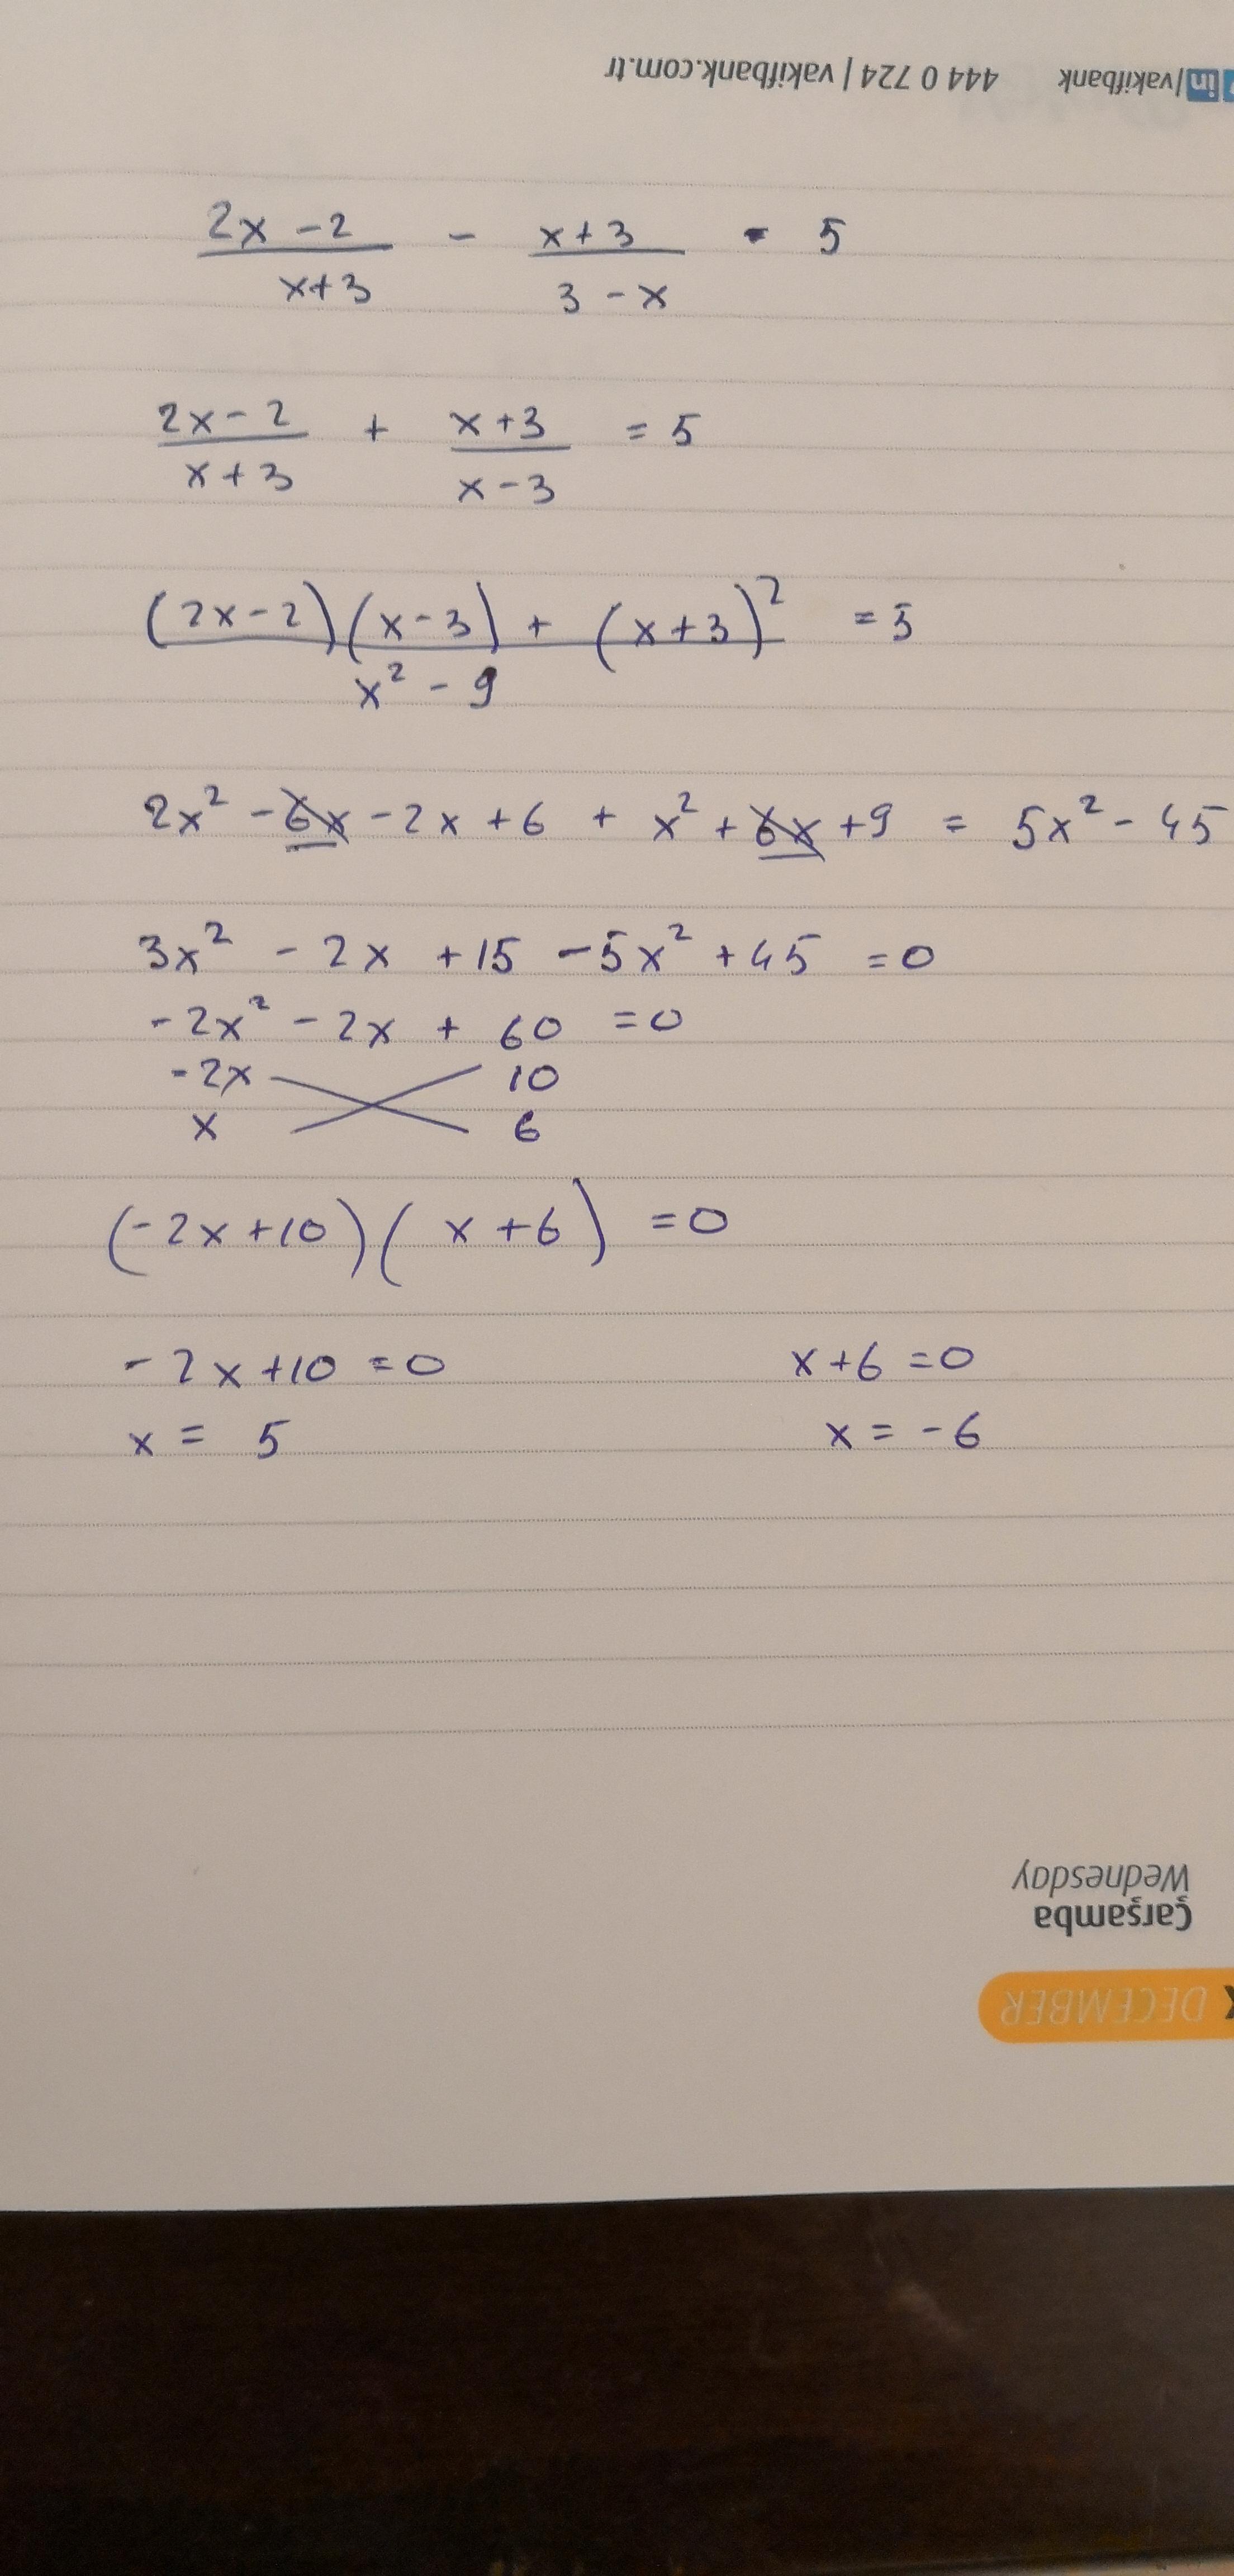 in/vakifbank 444 0 724 | vakifbank.com.tr
2x - 2 / x+3 - x+3 / 3 - x = 5
2x - 2 / x+3 + x+3 / x-3 = 5
(2x-2)(x-3) + (x+3)² / x² - 9 = 5
2x² - 6x - 2x + 6 + x² + 6x + 9 = 5x² - 45
3x² - 2x + 15 - 5x² + 45 = 0
-2x² - 2x + 60 = 0
-2x 10
x 6
(-2x+10)(x+6) = 0
-2x+10 = 0 x+6 = 0
x = 5 x = -6
Wednesday
Çarşamba
DECEMBER